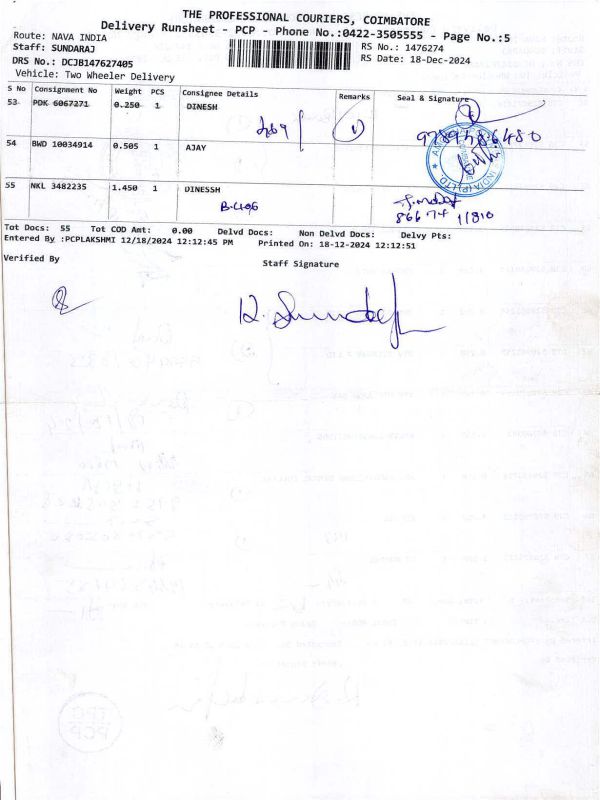 THE PROFESSIONAL COURIERS, COIMBATORE
Delivery Runsheet - PCP - Phone No.:0422-3505555 - Page No.:5
Route: NAVA INDIA
RS No.: 1476274
Staff: SUNDARAJ
RS Date: 18-Dec-2024
DRS No.: DCJB147627405
Vehicle: Two Wheeler Delivery
S No Consignment No Weight PCS Consignee Details Remarks Seal & Signature
53 PDK 6067271 0.250 1 DINESH
54 BWD 10034914 0.505 1 AJAY
55 NKL 3482235 1.450 1 DINESSH
B-406
86674 11810
Tot Docs: 55 Tot COD Amt: 0.00 Delvd Docs: Non Delvd Docs: Delvy Pts:
Entered By :PCPLAKSHMI 12/18/2024 12:12:45 PM Printed On: 18-12-2024 12:12:51
Verified By
Staff Signature